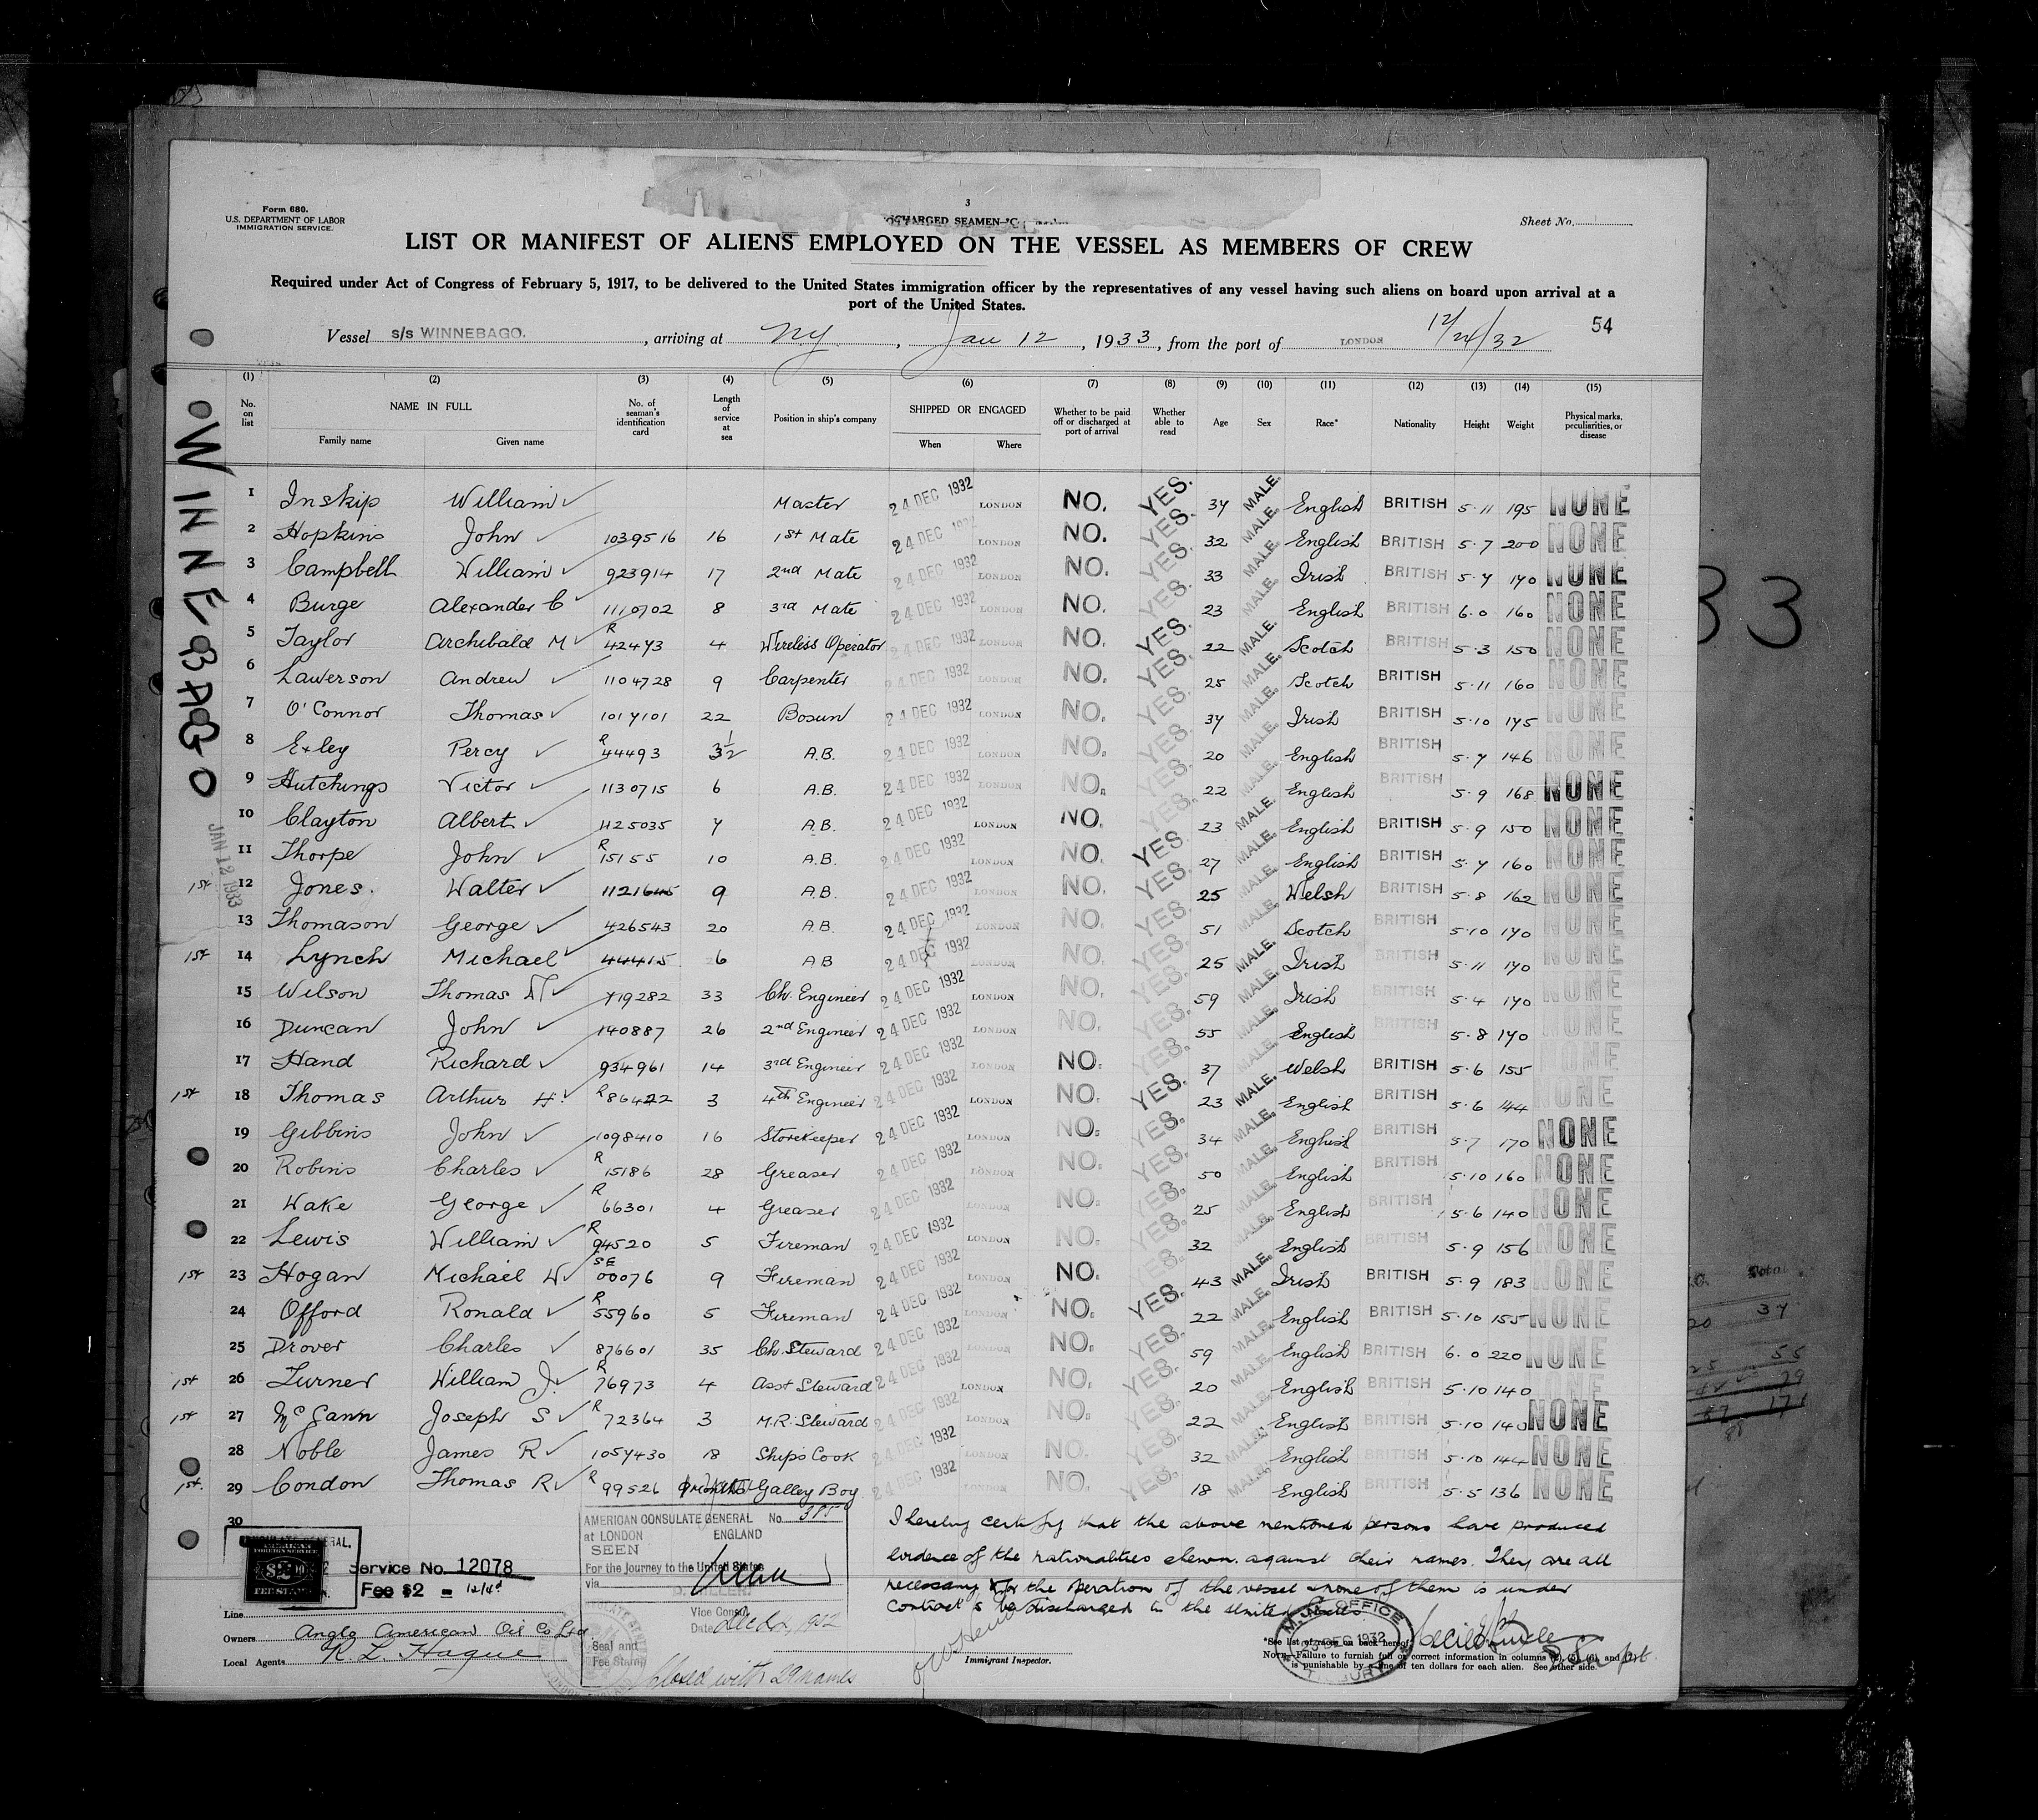 Form 680.
U.S. DEPARTMENT OF LABOR
IMMIGRATION SERVICE.
3
Sheet No.
LIST OR MANIFEST OF ALIENS EMPLOYED ON THE VESSEL AS MEMBERS OF CREW
Required under Act of Congress of February 5, 1917, to be delivered to the United States immigration officer by the representatives of any vessel having such aliens on board upon arrival at a
port of the United States.
54
Vessel s/s WINNEBAGO. , arriving at NY , Jan 12 , 1933 , from the port of LONDON 12/24/32
(1) (2) (3) (4) (5) (6) (7) (8) (9) (10) (11) (12) (13) (14) (15)
No. on list NAME IN FULL Family name Given name No. of seaman's identification card Length of service at sea Position in ship's company SHIPPED OR ENGAGED When Where Whether to be paid off or discharged at port of arrival Whether able to read Age Sex Race* Nationality Height Weight Physical marks, peculiarities, or disease
WINNEBAGO
JAN 12 1933
1 Inskip William Master 24 DEC 1932 LONDON NO. YES. 34 MALE. English BRITISH 5.11 195 NONE
2 Hopkins John 1039516 16 1st Mate 24 DEC 1932 LONDON NO. YES. 32 MALE. English BRITISH 5.7 200 NONE
3 Campbell William 923914 17 2nd Mate 24 DEC 1932 LONDON NO. YES. 33 MALE. Irish BRITISH 5.7 170 NONE
4 Burge Alexander C 1110702 8 3rd Mate 24 DEC 1932 LONDON NO. YES. 23 MALE. English BRITISH 6.0 160 NONE
5 Taylor Archibald M R 42473 4 Wireless Operator 24 DEC 1932 LONDON NO. YES. 22 MALE. Scotch BRITISH 5.3 150 NONE
6 Lawerson Andrew 1104728 9 Carpenter 24 DEC 1932 LONDON NO. YES. 25 MALE. Scotch BRITISH 5.11 160 NONE
7 O'Connor Thomas 1017101 22 Bosun 24 DEC 1932 LONDON NO. YES. 37 MALE. Irish BRITISH 5.10 175 NONE
8 Exley Percy R 44493 3½ A.B. 24 DEC 1932 LONDON NO. YES. 20 MALE. English BRITISH 5.7 146 NONE
9 Hutchings Victor 1130715 6 A.B. 24 DEC 1932 LONDON NO. YES. 22 MALE. English BRITISH 5.9 168 NONE
10 Clayton Albert 1125035 7 A.B. 24 DEC 1932 LONDON NO. YES. 23 MALE. English BRITISH 5.9 150 NONE
11 Thorpe John R 15155 10 A.B. 24 DEC 1932 LONDON NO. YES. 27 MALE. English BRITISH 5.7 160 NONE
1st 12 Jones. Walter 1121645 9 A.B. 24 DEC 1932 LONDON NO. YES. 25 MALE. Welsh BRITISH 5.8 162 NONE
13 Thomason George 426543 20 A.B. 24 DEC 1932 LONDON NO. YES. 51 MALE. Scotch BRITISH 5.10 170 NONE
1st 14 Lynch Michael 44415 6 AB 24 DEC 1932 LONDON NO. YES. 25 MALE. Irish BRITISH 5.11 170 NONE
15 Wilson Thomas 719282 33 Ch. Engineer 24 DEC 1932 LONDON NO. YES. 59 MALE. Irish BRITISH 5.4 170 NONE
16 Duncan John 140887 26 2nd Engineer 24 DEC 1932 LONDON NO. YES. 55 MALE. English BRITISH 5.8 170 NONE
17 Hand Richard 934961 14 3rd Engineer 24 DEC 1932 LONDON NO. YES. 37 MALE. Welsh BRITISH 5.6 155 NONE
1st 18 Thomas Arthur H. R 86422 3 4th Engineer 24 DEC 1932 LONDON NO. YES. 23 MALE. English BRITISH 5.6 144 NONE
19 Gibbins John 1098410 16 Storekeeper 24 DEC 1932 LONDON NO. YES. 34 MALE. English BRITISH 5.7 170 NONE
20 Robins Charles R 15186 28 Greaser 24 DEC 1932 LONDON NO. YES. 50 MALE. English BRITISH 5.10 160 NONE
21 Wake George R 66301 4 Greaser 24 DEC 1932 LONDON NO. YES. 25 MALE. English BRITISH 5.6 140 NONE
22 Lewis William R 94520 5 Fireman 24 DEC 1932 LONDON NO. YES. 32 MALE. English BRITISH 5.9 156 NONE
1st 23 Hogan Michael W SE 00076 9 Fireman 24 DEC 1932 LONDON NO. YES. 43 MALE. Irish BRITISH 5.9 183 NONE
24 Offord Ronald R 55960 5 Fireman 24 DEC 1932 LONDON NO. YES. 22 MALE. English BRITISH 5.10 155 NONE
25 Drover Charles 876601 35 Ch. Steward 24 DEC 1932 LONDON NO. YES. 59 MALE. English BRITISH 6.0 220 NONE
1st 26 Turner William J. R 76973 4 Asst Steward 24 DEC 1932 LONDON NO. YES. 20 MALE. English BRITISH 5.10 140 NONE
1st 27 McGann Joseph S R 72364 3 M.R. Steward 24 DEC 1932 LONDON NO. YES. 22 MALE. English BRITISH 5.10 140 NONE
28 Noble James R 1057430 18 Ships Cook 24 DEC 1932 LONDON NO. YES. 32 MALE. English BRITISH 5.10 144 NONE
1st. 29 Condon Thomas R R 99526 Galley Boy 24 DEC 1932 LONDON NO. YES. 18 MALE. English BRITISH 5.5 136 NONE
30
AMERICAN CONSULATE GENERAL No. 385
at LONDON ENGLAND
SEEN
For the journey to the United States
via
Vice Consul
Date
Seal and
Fee Stamp
closed with 29 names
Service No. 12078
Fee $2 =
Line
Owners Anglo American Oil Co Ltd
Local Agents
I hereby certify that the above mentioned persons have produced
evidence of the nationalities shewn against their names. They are all
necessary for the operation of the vessel & none of them is under
contract to be discharged in the United States
Immigrant Inspector.
23 DEC 1932
*See list of races on back hereof.
Note.—Failure to furnish full or correct information in columns
is punishable by a fine of ten dollars for each alien. See other side.
33